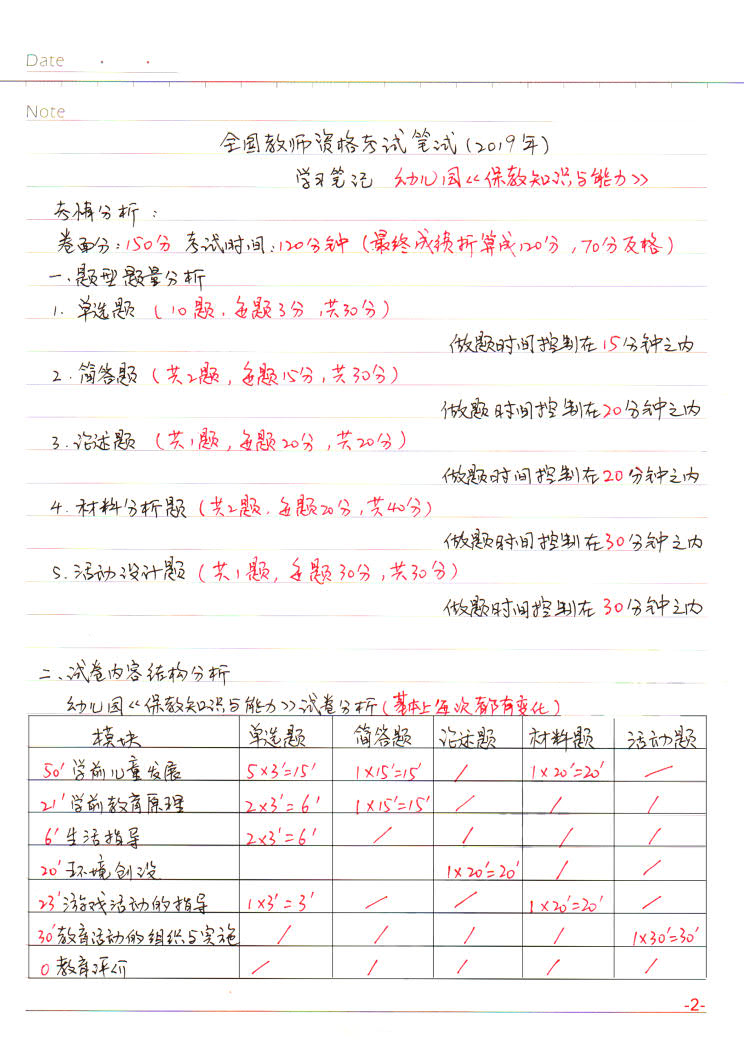 Date
Note
全国教师资格考试笔试(2019年)
学习笔记 幼儿园《保教知识与能力》
考情分析：
卷面分：150分 考试时间：120分钟（最终成绩折算成120分，70分及格）
一、题型题量分析
1. 单选题（10题，每题3分，共30分）
做题时间控制在15分钟之内
2. 简答题（共2题，每题15分，共30分）
做题时间控制在20分钟之内
3. 论述题（共1题，每题20分，共20分）
做题时间控制在20分钟之内
4. 材料分析题（共2题，每题20分，共40分）
做题时间控制在30分钟之内
5. 活动设计题（共1题，每题30分，共30分）
做题时间控制在30分钟之内
二、试卷内容结构分析
幼儿园《保教知识与能力》试卷分析（基本上每次都有变化）
模块 单选题 简答题 论述题 材料题 活动题
50' 学前儿童发展 5×3'=15' 1×15'=15' / 1×20'=20' /
21' 学前教育原理 2×3'=6' 1×15'=15' / / /
6' 生活指导 2×3'=6' / / / /
20' 环境创设 1×20'=20' / /
23' 游戏活动的指导 1×3'=3' / / 1×20'=20' /
30' 教育活动的组织与实施 / / / / 1×30'=30'
0 教育评价 / / / / /
-2-